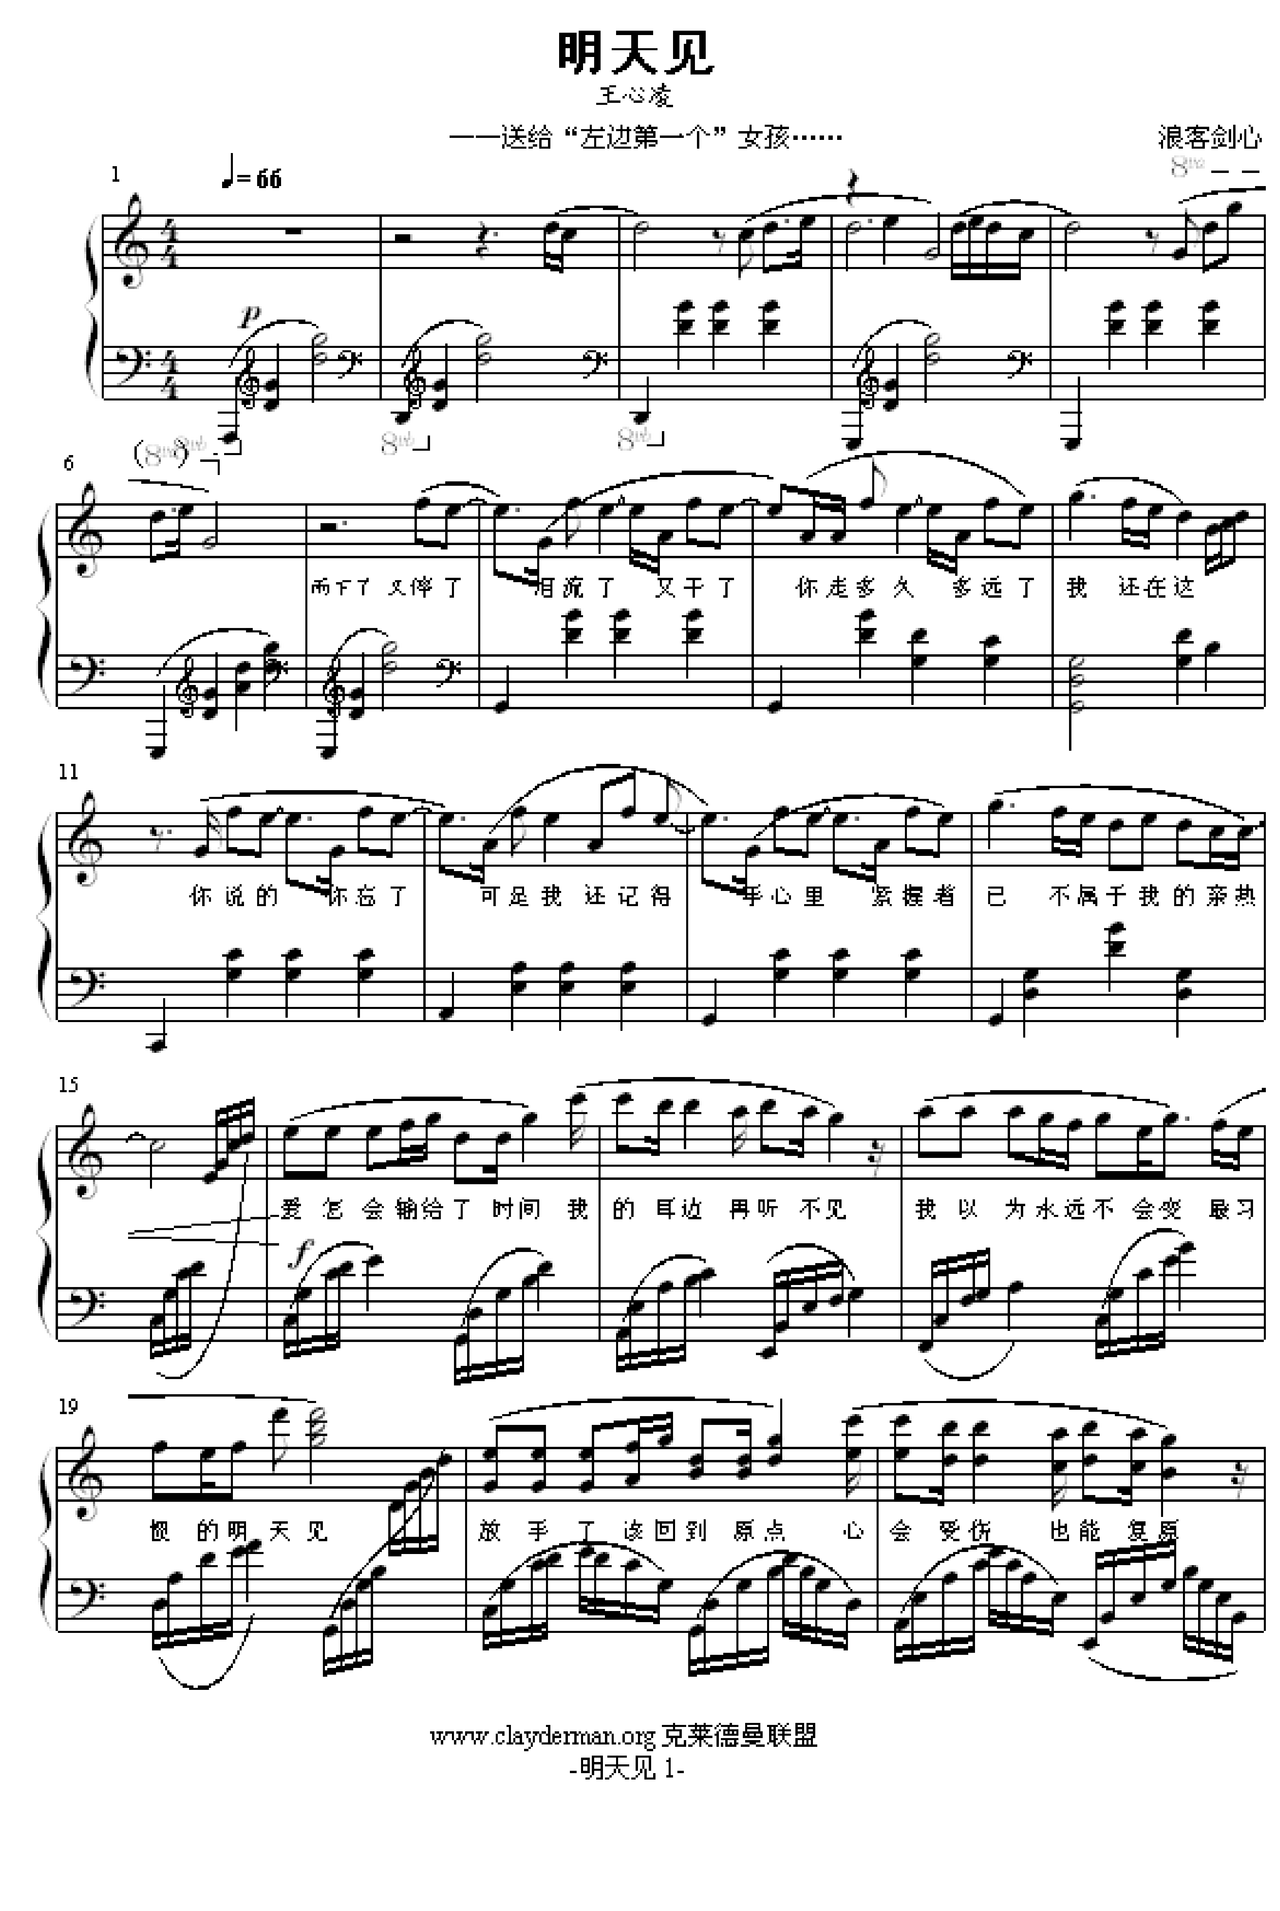 明天见
王心凌
——送给“左边第一个”女孩……
浪客剑心
1
♩= 66
8va
p
8vb
8vb
8vb
6
雨下了 又停了 泪流了 又干了 你走多久 多远了 我 还在这
11
你说的 你忘了 可是我 还记得 手心里 紧握着 已 不属于我的亲热
15
f
爱怎会输给了时间 我的耳边 再听不见 我以为永远不会变 最习
19
惯的明天见 放手了该回到原点 心会受伤 也能复原
www.clayderman.org 克莱德曼联盟
-明天见 1-